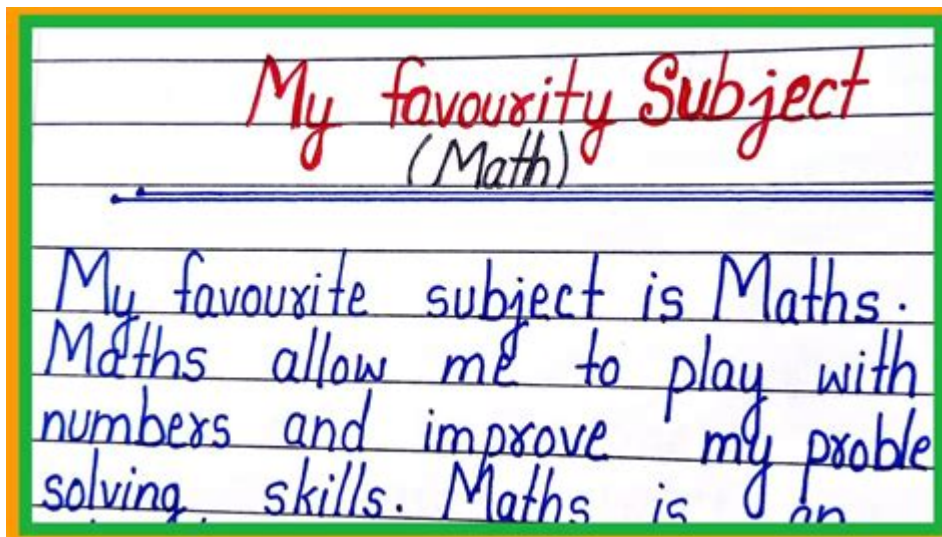 My favourity Subject
(Math)
My favourite subject is Maths.
Maths allow me to play with
numbers and improve my proble
solving skills. Maths is an